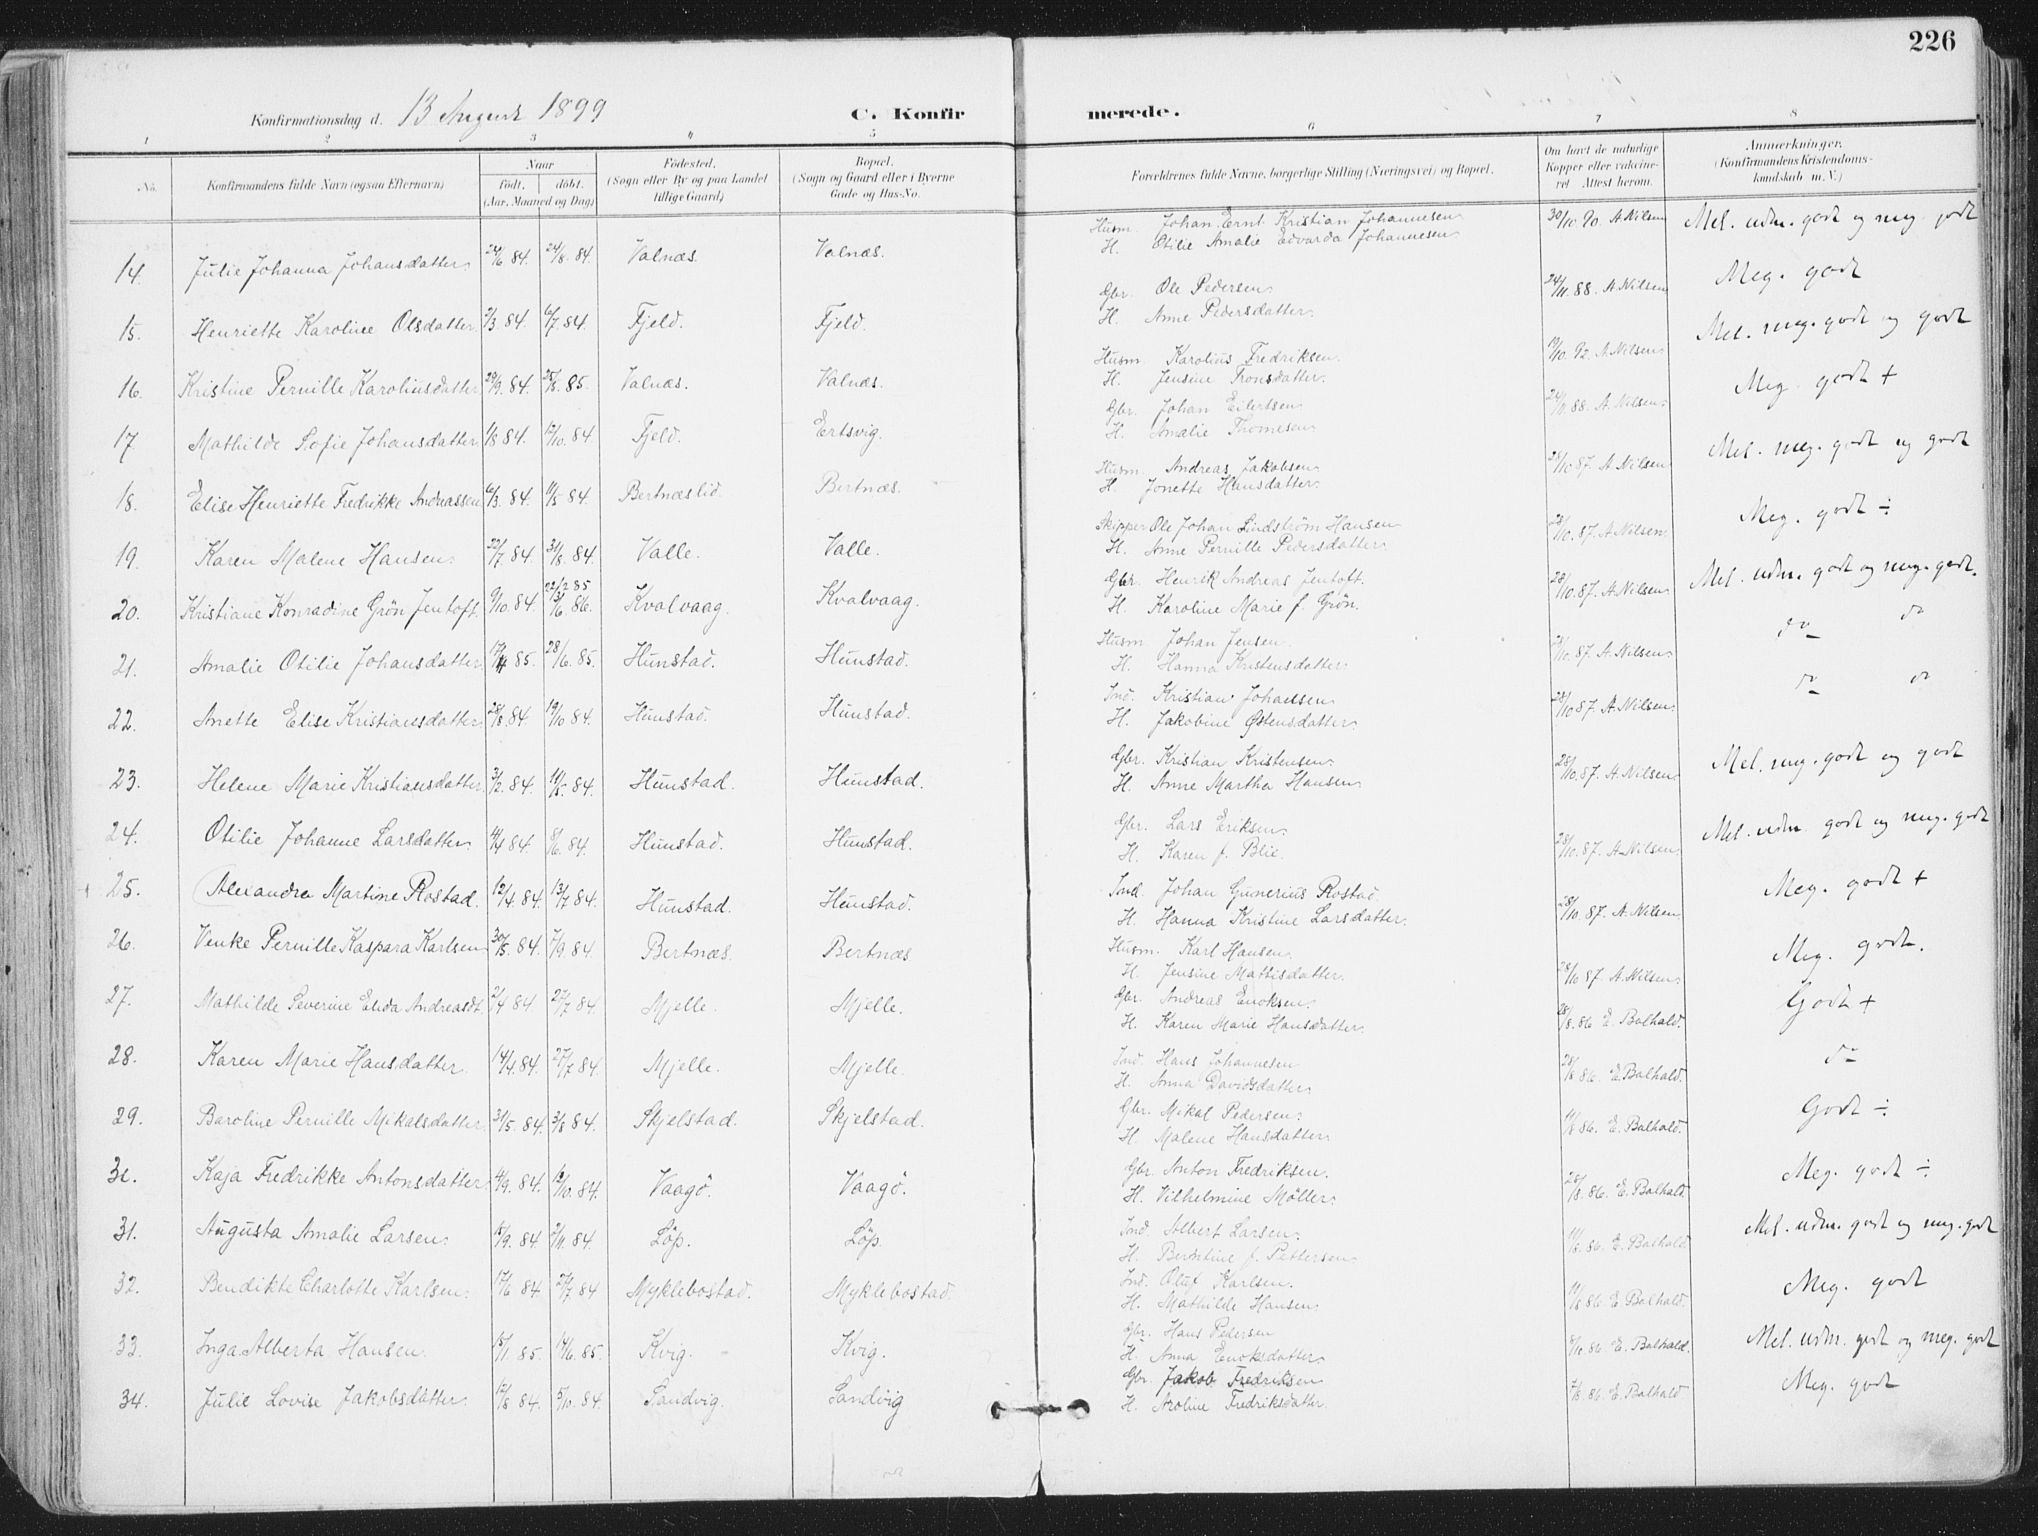 226
Konfirmationsdag d. 13 August 1899
C. Konfirmerede.
1 2 3 " 5 6 7 8
No. Konfirmandens fulde Navn (ogsaa Efternavn) Naar født. døbt. (Aar, Maaned og Dag) Fødested. (Sogn eller By og paa Landet tillige Gaard) Bopæl. (Sogn og Gaard eller i Byerne Gade og Hus-No. Forældrenes fulde Navne, borgerlige Stilling (Næringsvei) og Bopæl. Om havt de naturlige Kopper eller vaccineret Attest herom. Anmærkninger. (Konfirmandens Kristendomskundskab m. V.)
14. Julie Johanna Johansdatter 24/6 84. 24/8. 84. Valnæs. Valnæs. Husm. Johan Ernt Kristian Johannesen 30/10. 90. A. Nilsen Mel. udm. godt og meg. godt
H. Otilie Amalie Edvarda Johannesen
15. Henriette Karoline Olsdatter 2/3 84. 6/7 84. Fjeld. Fjeld. Gbr. Ole Pedersen 24/11. 88. A. Nilsen Meg. godt
H. Anne Pedersdatter
16. Kristine Pernille Karoliusdatter 29/9. 84. 25/8. 85. Valnæs. Valnæs. Husm. Karolius Fredriksen. 19/10. 92. A. Nilsen Mel. meg. godt og godt
H. Jensine Tronsdatter.
17. Mathilde Sofie Johansdatter 1/8 84. 12/10. 84. Fjeld. Ertsvig. Gbr. Johan Eilertsen 24/11. 88. A. Nilsen. Meg. godt +
H. Amalie Thomesen
18. Elise Henriette Fredrikke Andreassen 6/3. 84. 11/5 84. Bertnæslid. Bertnæs. Husm. Andreas Jakobsen 28/10 87. A. Nilsen Mel. meg. godt og godt
H. Jonette Hansdatter
19. Karen Malene Hansen. 22/7. 84. 31/8. 84. Valle. Valle. Skipper Ole Johan Lindström Hansen 28/10. 87. A. Nilsen. Meg. godt ÷
H. Anne Pernille Pedersdatter
20. Kristiane Konradine Grön Jentoft. 9/10. 84 22/2 85 3/6. 86. Kvalvaag. Kvalvaag. Gbr. Henrik Andreas Jentoft. 28/10. 87. A. Nilsen Mel. udm. godt og meg. godt.
H. Karoline Marie f. Grön.
21. Amalie Otilie Johansdatter 17/4 85. 28/6. 85. Hunstad. Hunstad. Husm. Johan Jensen. 28/10. 87. A. Nilsen. do do
H. Hanna Kristensdatter
22. Anette Elise Kristiansdatter 28/8 84 19/10 84. Hunstad. Hunstad. Ind. Kristian Johansen 28/10 87. A. Nilsen. do do
H. Jakobine Østensdatter
23. Helene Marie Kristiansdatter 3/2. 84. 11/5. 84. Hunstad. Hunstad. Gbr. Kristian Kristensen 28/10. 87. A. Nilsen Mel. meg. godt og godt
H. Anne Martha Hansen
24. Otilie Johanne Larsdatter. 4/4 84 8/6. 84. Hunstad. Hunstad. Gbr. Lars Eriksen 28/10. 87. A. Nilsen. Mel. udm. godt og meg. godt
H. Karen f. Blix.
25. Alexandra Martine Rostad. 12/4. 84. 13/7 84. Hunstad. Hunstad. Ind. Johan Gunerius Rostad. 28/10. 87. A. Nilsen Meg. godt +
H. Hanna Kristine Larsdatter.
26. Venke Pernille Kaspara Karlsen 30/5. 84 7/9. 84 Bertnæs. Bertnæs Husm. Karl Hansen 28/10 87. A. Nilsen Meg. godt.
H. Jensine Mathisdatter.
27. Mathilde Severine Elida Andreasdt. 2/4 84 27/7 84. Mjelle. Mjelle. Gbr. Andreas Enoksen 28/8. 86 E. Balhald. Godt +
H. Karen Marie Hansdatter
28. Karen Marie Hansdatter 14/4. 84. 27/7 84. Mjelle. Mjelle. Ind. Hans Johannesen 28/8 86. E. Balhald. do
H. Anna Davidsdatter
29. Baroline Pernille Mikalsdatter 31/5. 84 3/8 84. Skjelstad. Skjelstad. Gbr. Mikal Pedersen 11/8 86. E. Balhald. Godt ÷
H. Malene Hansdatter
30. Kaja Fredrikke Antonsdatter 4/9. 84. 12/10. 84. Vaagö. Vaagö. Gbr. Anton Fredriksen. 28/8. 86. E. Balhald. Meg. godt ÷
H. Vilhelmine Möller
31. Augusta Amalie Larsen. 15/9. 84 2/11. 84. Löp. Löp. Ind. Albert Larsen. 11/8. 86. E. Balhald Mel. udm. godt og meg. godt
H. Berntine f. Pettersen
32. Bendikte Charlotte Karlsen. 17/6 84 27/7 84 Myklebostad. Myklebostad. Ind. Oluf Karlsen. 11/8 86. E. Balhald. Meg. godt
H. Mathilde Hansen
33. Inga Alberta Hansen. 15/1. 85. 14/6. 85. Kvig. Kvig. Gbr. Hans Pedersen 8/10. 86 E. Balhald. Mel. udm. godt og meg. godt
H. Anna Enoksdatter
34. Julie Lovise Jakobsdatter 12/8 84. 5/10. 84. Sandvig. Sandvig Gbr. Jakob Fredriksen 7/8. 86. E. Balhald Meg. godt
H. Aroline Fredriksdatter